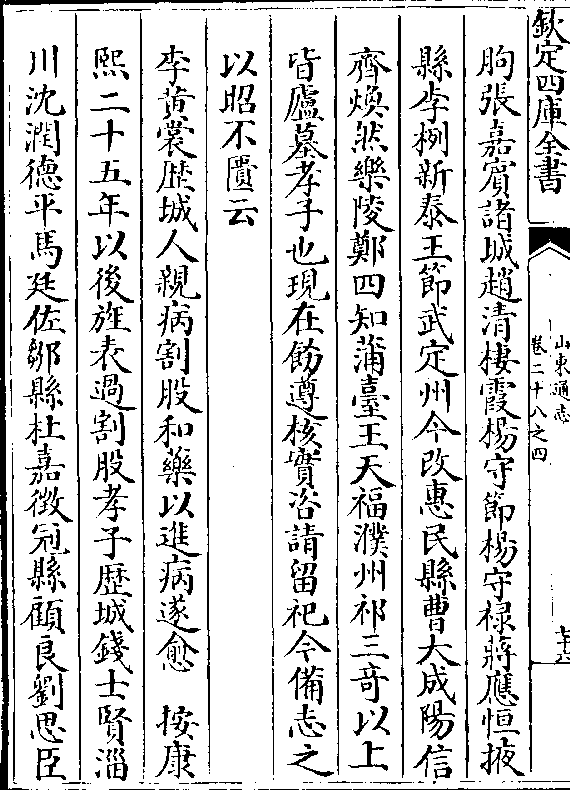 欽定四庫全書
山東通志
卷二十八之四
朐張嘉賓諸城趙清棲霞楊守節楊守禄蔣應恒掖
縣李栵新泰王節武定州今改惠民縣曹大成陽信
齊煥然樂陵鄭四知蒲臺王天福濮州祁三竒以上
皆廬墓孝子也現在飭遵核實咨請留祀今備志之
以昭不匱云
李黄裳歴城人親病割股和藥以進病遂愈 按康
熙二十五年以後旌表過割股孝子歴城錢士賢淄
川沈潤德平馬廷佐鄒縣杜嘉徵冠縣顧良劉思臣